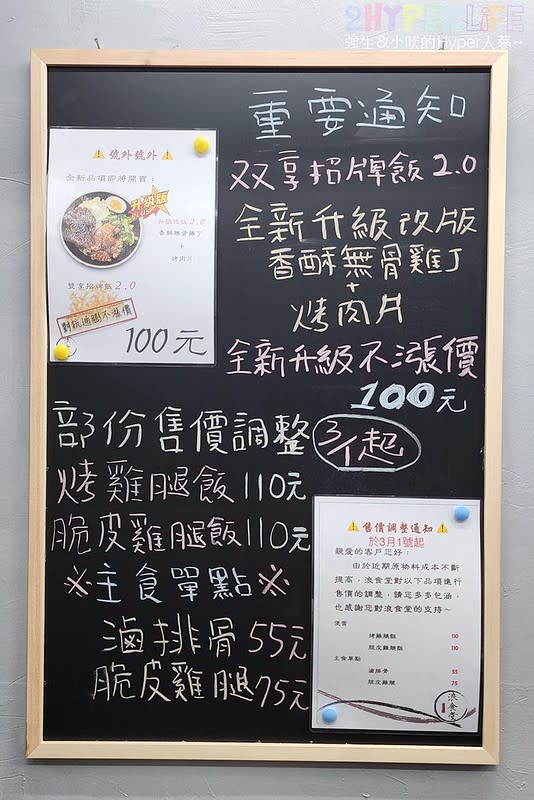 2HYPERLiFE
強生&小吠的Hyper人蔘~
重要通知
双享招牌飯2.0
全新升級改版
香酥無骨雞丁
+
烤肉片
全新升級不漲價
100元
部份售價調整 3/1起
烤雞腿飯110元
脆皮雞腿飯110元
※主食單點※
滷排骨55元
脆皮雞腿75元
號外號外
全新品項即將開賣：
升級版
PLUS
升級改版2.0
香酥無骨雞丁
+
烤肉片
雙享招牌飯2.0
對抗通膨不漲價
100元
售價調整通知
於3月1號起
親愛的客戶您好：
由於近期原物料成本不斷
提高，浪食堂對以下品項進行
售價的調整，請您多多包涵，
也感謝您對浪食堂的支持～
便當
烤雞腿飯 110
脆皮雞腿飯 110
主食單點
滷排骨 55
脆皮雞腿 75
浪食堂